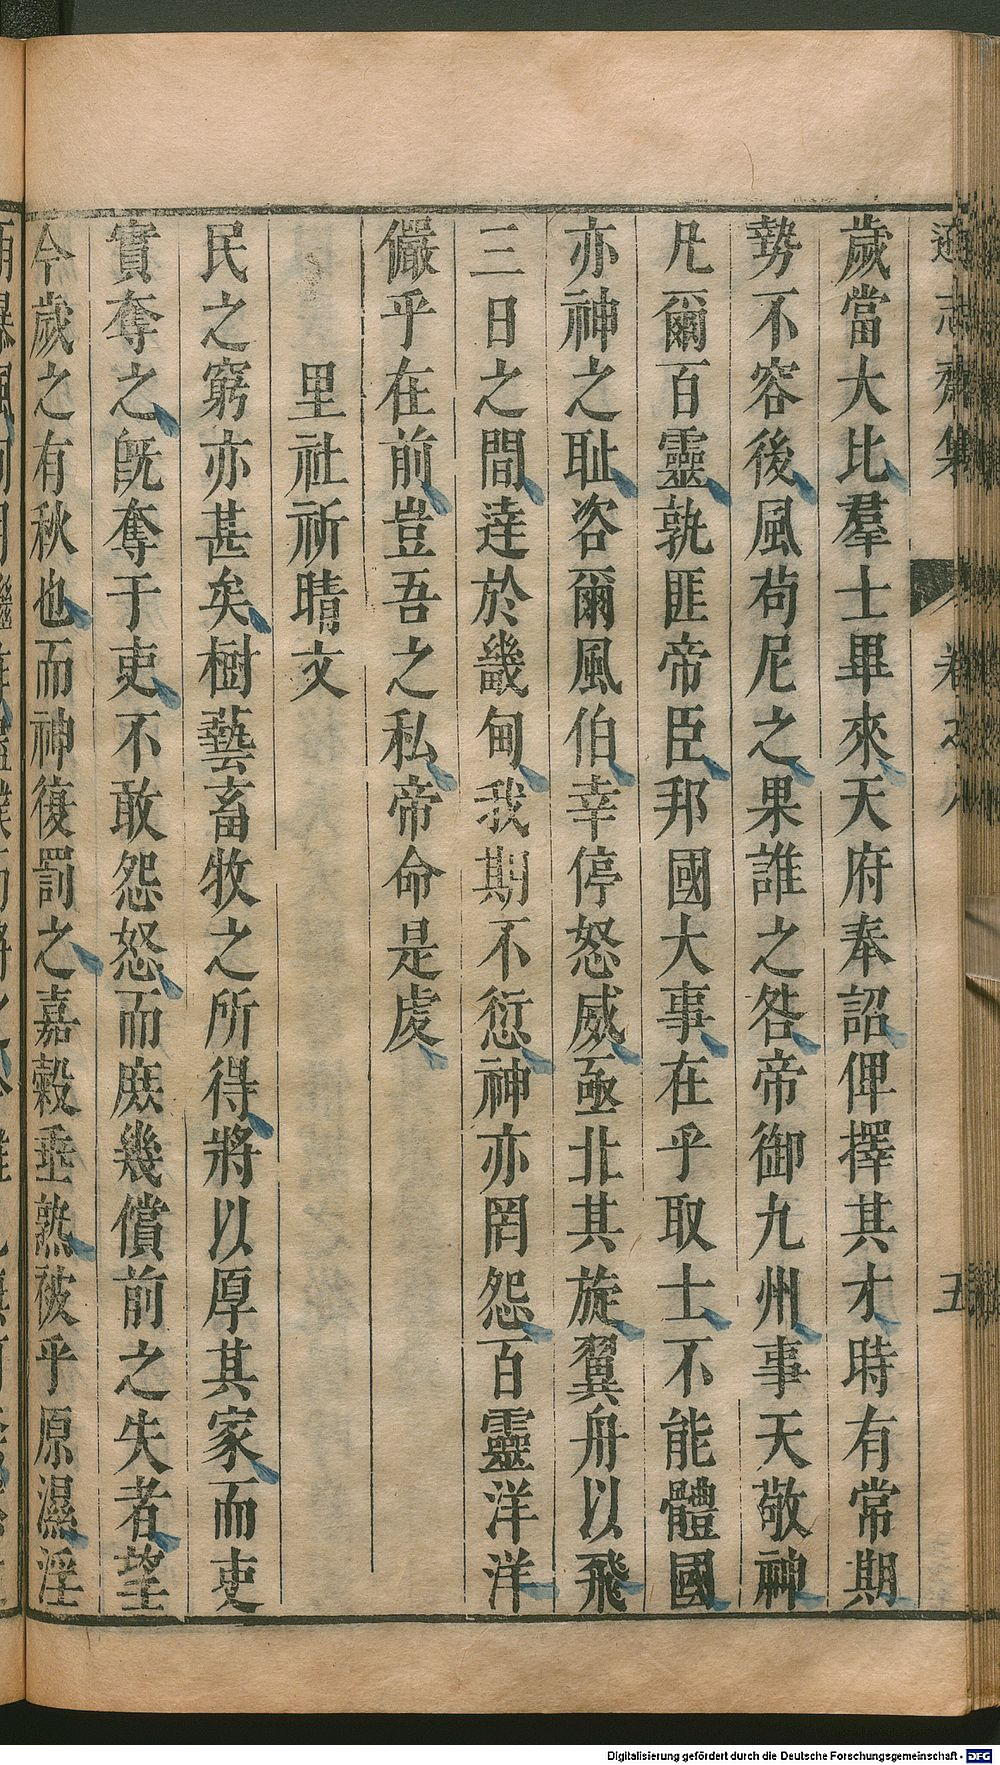 遜志齋集 卷之八 五
歲當大比羣士畢來天府奉詔俾擇其才時有常期
勢不容後風茍尼之果誰之咎帝御九州事天敬神
凡爾百靈孰匪帝臣邦國大事在乎取士不能體國
亦神之耻咨爾風伯幸停怒威亟北其旋翼舟以飛
三日之間逹於畿甸我期不愆神亦罔怨百靈洋洋
儼乎在前豈吾之私帝命是虔
里社祈晴文
民之窮亦甚矣樹藝畜牧之所得將以厚其家而吏
實奪之旣奪于吏不敢怨怒而庻幾償前之失者望
今歲之有秋也而神復罰之嘉榖垂熟被乎原濕淫
Digitalisierung gefördert durch die Deutsche Forschungsgemeinschaft - DFG